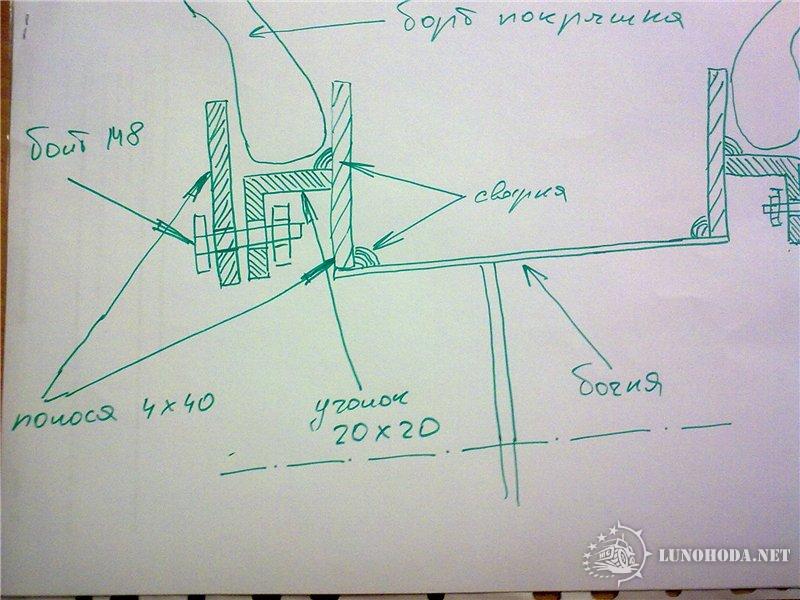 борт покрышка
болт М8
сварка
полоса 4х40
уголок
20х20
бочка
LUNOHODA.NET